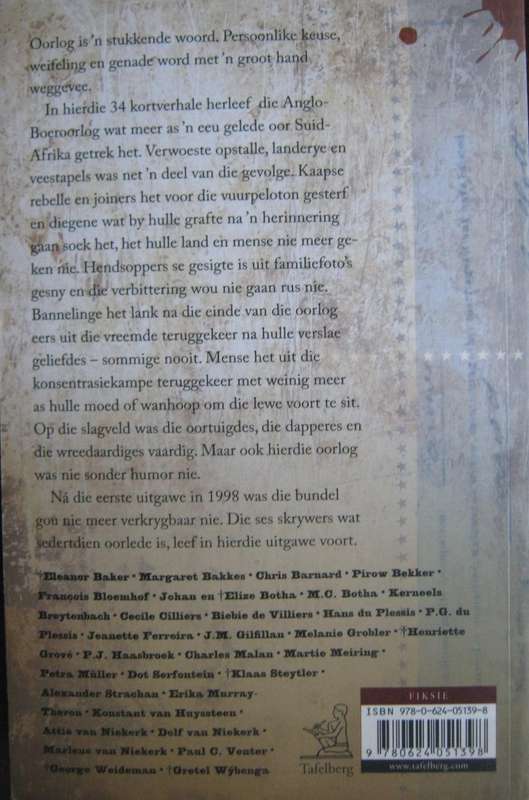 Oorlog is 'n stukkende woord. Persoonlike keuse,
weifeling en genade word met 'n groot hand
weggevee.
In hierdie 34 kortverhale herleef die Anglo-
Boereoorlog wat meer as 'n eeu gelede oor Suid-
Afrika getrek het. Verwoeste opstalle, landerye en
veestapels was net 'n deel van die gevolge. Kaapse
rebelle en joiners het voor die vuurpeloton gesterf
en diegene wat by hulle grafte na 'n herinnering
gaan soek het, het hulle land en mense nie meer ge-
ken nie. Hendsoppers se gesigte is uit familiefoto's
gesny en die verbittering wou nie gaan rus nie.
Bannelinge het lank na die einde van die oorlog
eers uit die vreemde teruggekeer na hulle verslae
geliefdes – sommige nooit. Mense het uit die
konsentrasiekampe teruggekeer met weinig meer
as hulle moed of wanhoop om die lewe voort te sit.
Op die slagveld was die oortuigdes, die dapperes en
die wreedaardiges vaardig. Maar ook hierdie oorlog
was nie sonder humor nie.
Ná die eerste uitgawe in 1998 was die bundel
gou nie meer verkrygbaar nie. Die ses skrywers wat
sedertdien oorlede is, leef in hierdie uitgawe voort.
†Eleanor Baker • Margaret Bakkes • Chris Barnard • Pirow Bekker •
François Bloemhof • Johan en †Elize Botha • M.C. Botha • Kerneels
Breytenbach • Cecile Cilliers • Biebie de Villiers • Hans du Plessis • P.G. du
Plessis • Jeanette Ferreira • J.M. Gilfillan • Melanie Grobler • †Henriette
Grové • P.J. Haasbroek • Charles Malan • Martie Meiring •
Petra Müller • Dot Serfontein • †Klaas Steytler •
Alexander Strachan • Erika Murray-
Theron • Konstant van Huyssteen •
Attie van Niekerk • Dolf van Niekerk •
Marleus van Niekerk • Paul C. Venter •
†George Weideman • †Gretel Wybenga
Tafelberg
FIKSIE
ISBN 978-0-624-05139-8
9 780624 051398
www.tafelberg.com